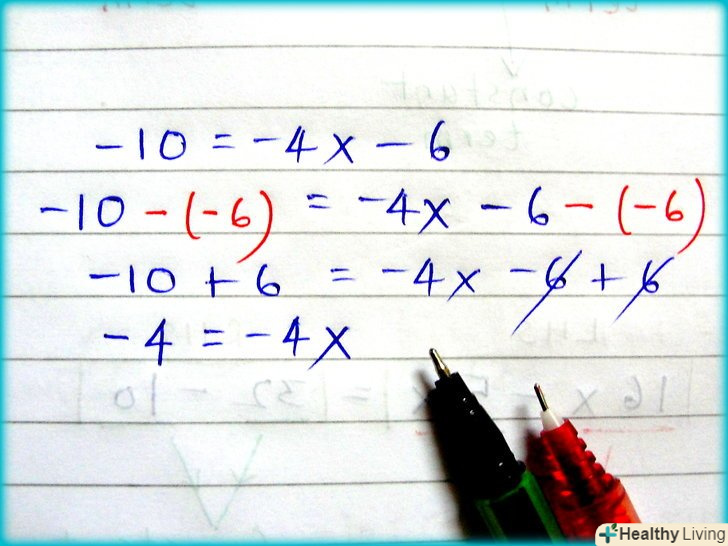 -10 = -4x - 6
-10 - (-6) = -4x - 6 - (-6)
-10 + 6 = -4x - 6 + 6
-4 = -4x
Healthy Living